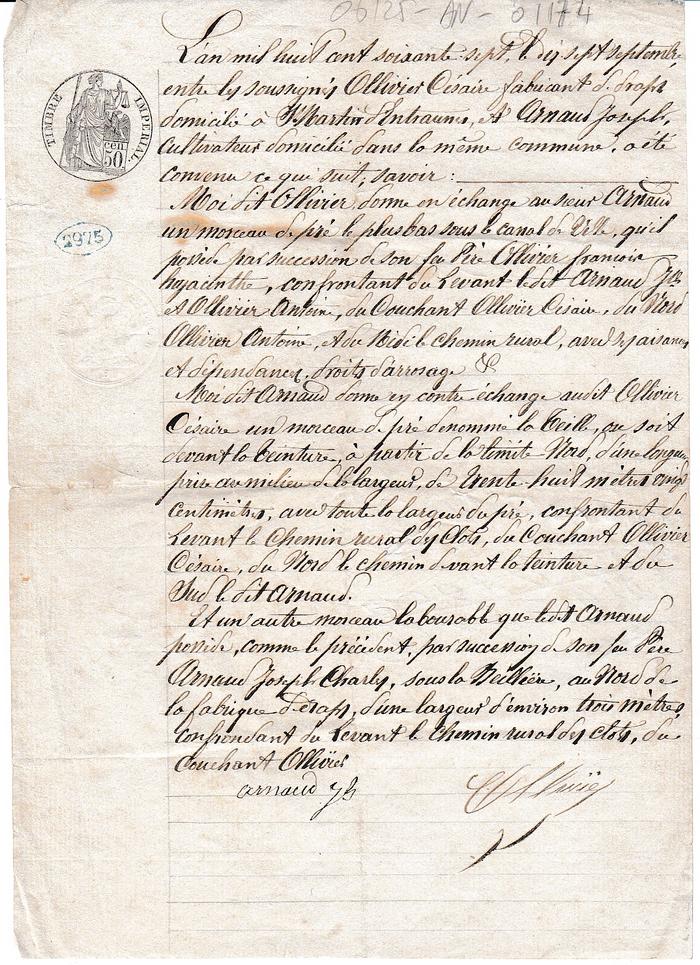 06125-AN-01174
TIMBRE IMPERIAL
50 cen
2975
L'an mil huit cent soixante sept, le dix sept septembre
entre les soussignés Ollivier Césaire fabricant de draps
domicilié à St Martin d'Entraunes, et Arnaud Joseph,
cultivateur domicilié dans la même commune, a été
convenu ce qui suit, savoir :
Moi dit Ollivier, donne en échange au sieur Arnaud
un morceau de pré le plus bas sous le canal de Ville, qu'il
possède par succession de son feu Père Ollivier françois
hyacinthe, confrontant du Levant ledit Arnaud Jh
et Ollivier Antoine, du Couchant Ollivier Césaire, du Nord
Ollivier Antoine, et du Midi le chemin rural, avec ses aisances
et dépendances, droits d'arrosage &
Moi dit Arnaud donne en contre échange audit Ollivier
Césaire un morceau de pré denommé la Teille, ou soit
devant la teinture, à partir de la limite Nord, d'une longueur
prise au milieu de la largeur, de trente huit mètres vingt
centimètres, avec toute la largeur du pré, confrontant du
Levant le Chemin rural des Clots, du Couchant Ollivier
Césaire, du Nord le chemin devant la teinture et du
Sud le dit Arnaud.
Et un autre morceau labourable que ledit Arnaud
possède, comme le précédent, par succession de son feu Père
Arnaud Joseph Charles, sous la Beillière, au Nord de
la fabrique de draps, d'une largeur d'environ trois mètres,
confrondant du Levant le Chemin rural des clots, du
Couchant Ollivier
arnaud jh
Ollivier